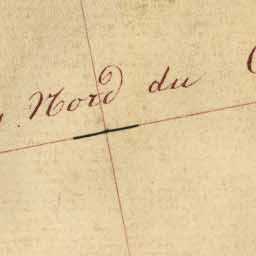 Nord du